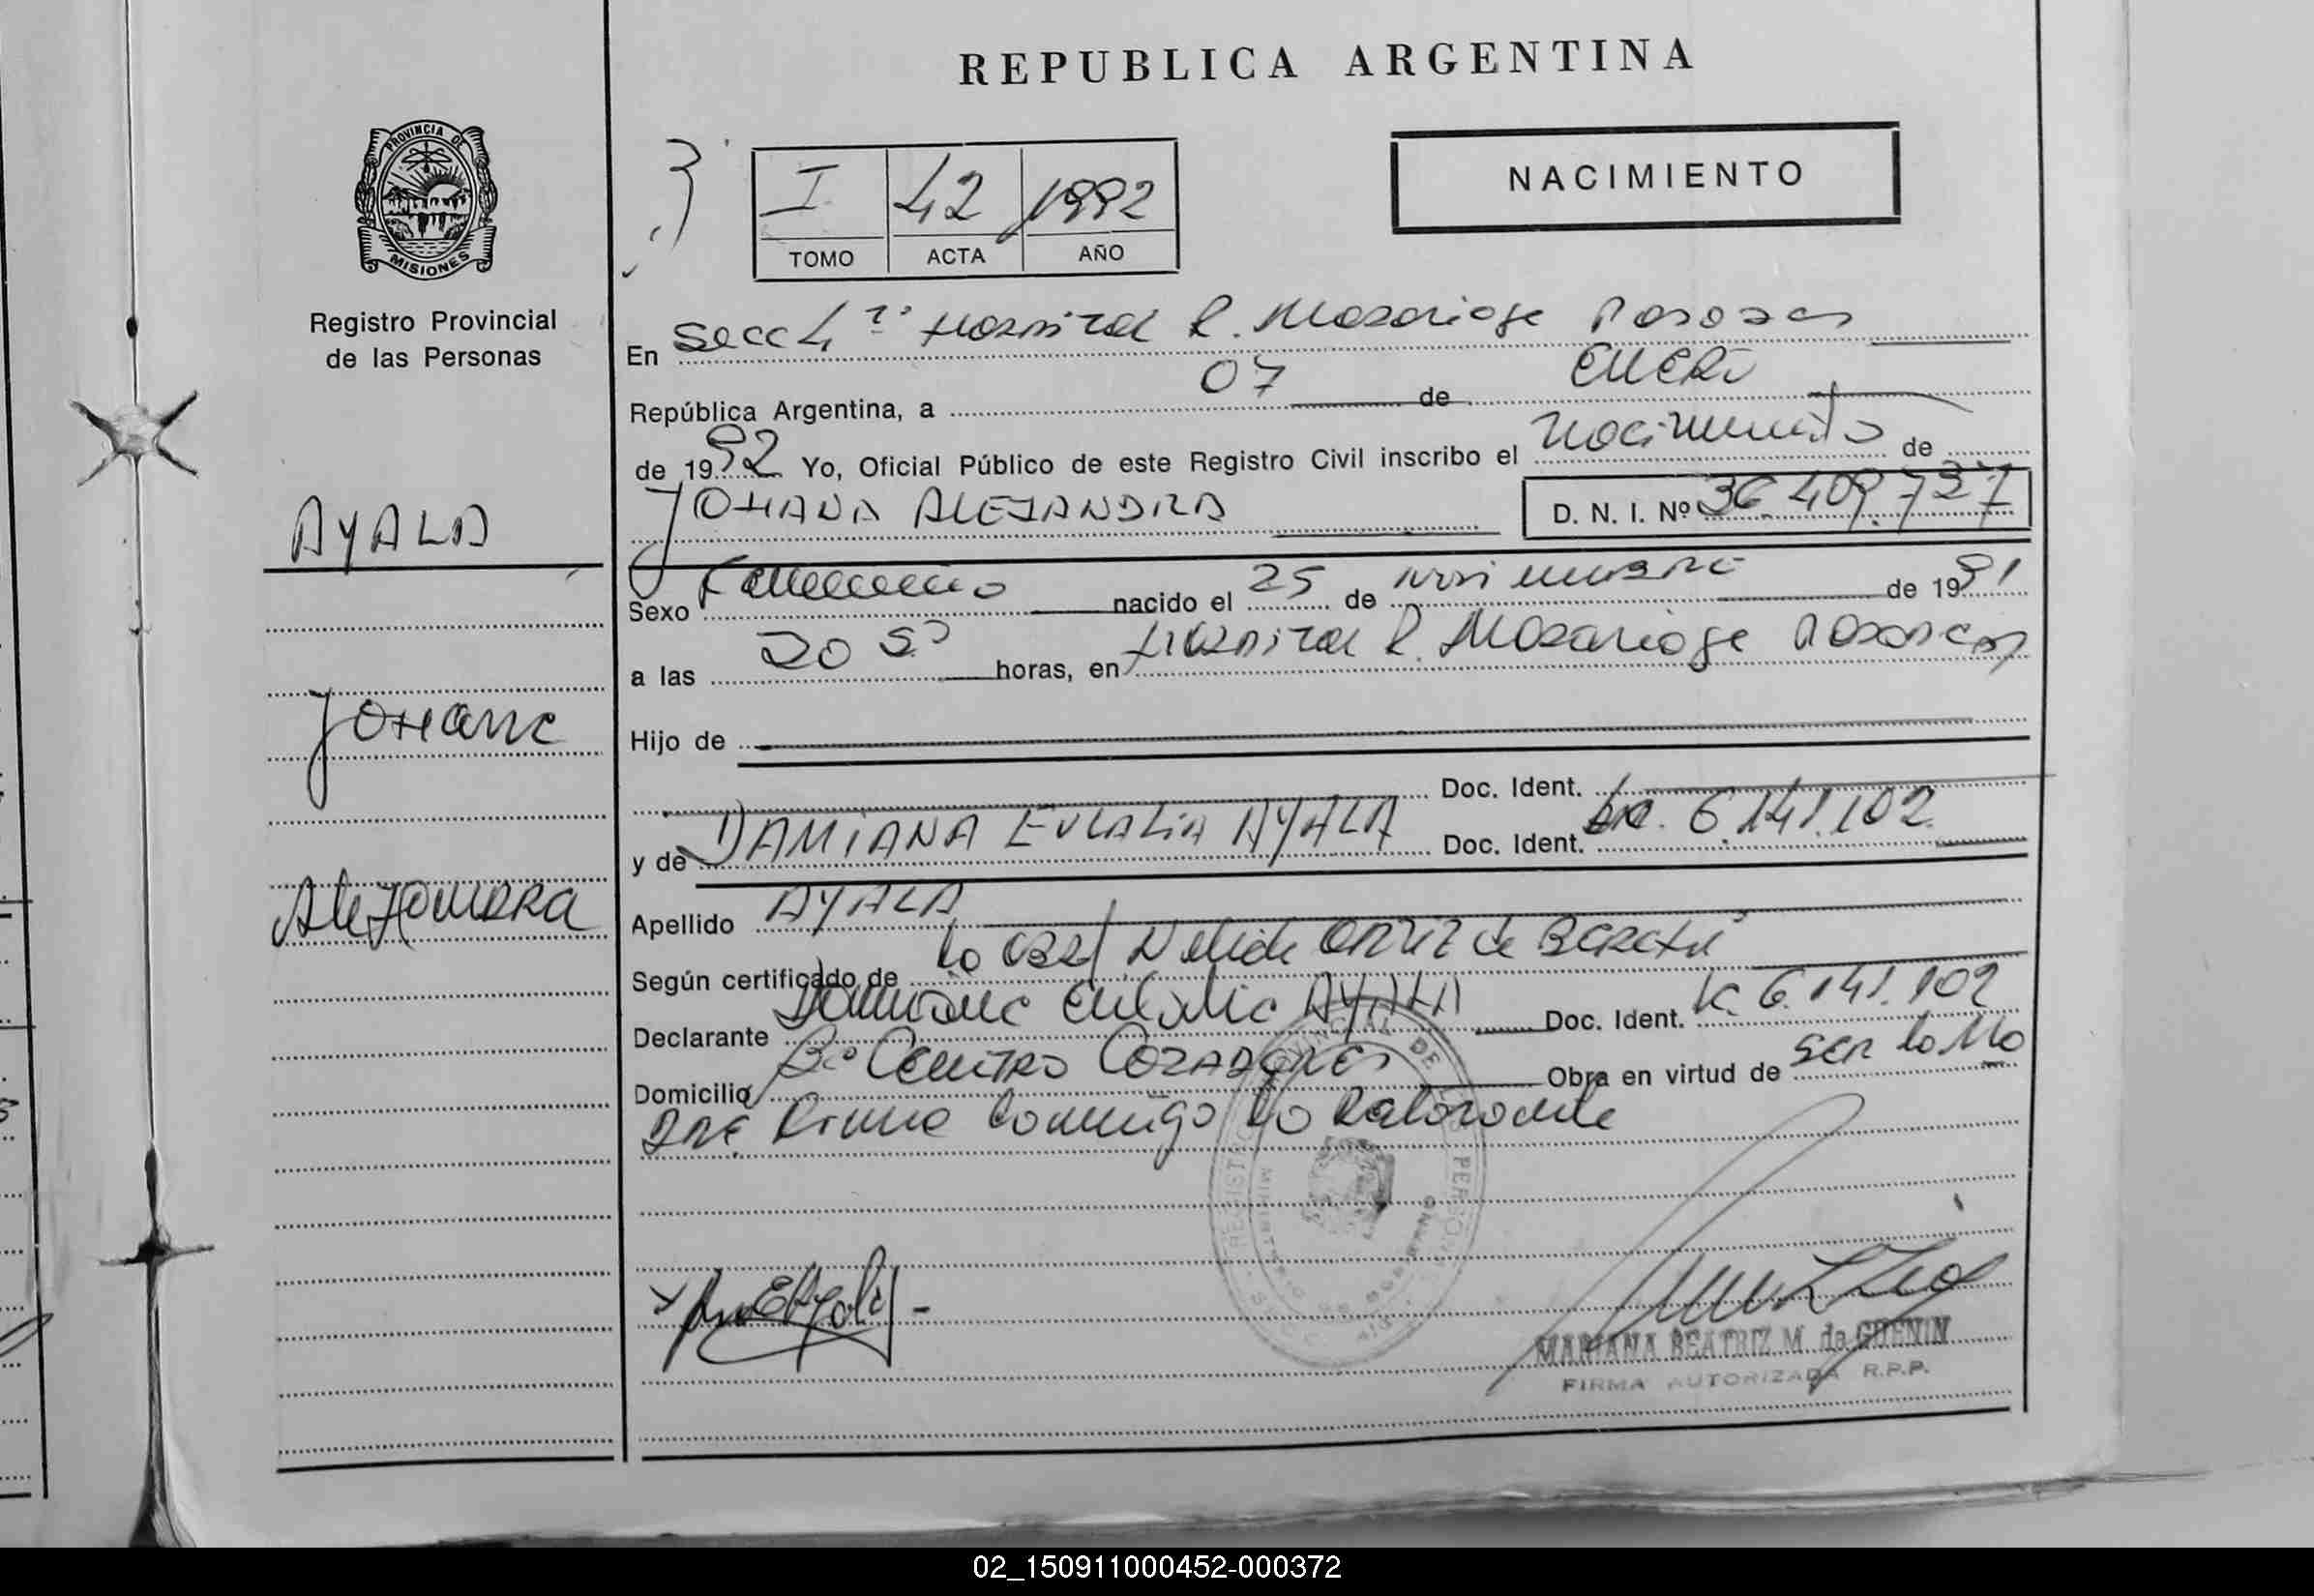 REPUBLICA ARGENTINA
PROVINCIA DE
MISIONES
Registro Provincial
de las Personas
AYALA
Johana
Alejandra
3
I 42 1992
TOMO ACTA AÑO
NACIMIENTO
En Secc 4ª Hospital R. Madariaga Posadas
República Argentina, a 07 de Enero
de 1992 Yo, Oficial Público de este Registro Civil inscribo el nacimiento de
JOHANA ALEJANDRA D. N. I. Nº 36.409.737
Sexo Femenino nacido el 25 de noviembre de 1991
a las 20 horas, en Hospital R. Madariaga Posadas
Hijo de
Doc. Ident.
y de DAMIANA EULALIA AYALA Doc. Ident. 6.141.102
Apellido AYALA
Según certificado de la Obst Nelida Ortiz de
Declarante Damiana Eulalia AYALA Doc. Ident. Lc. 6.141.102
Domicilio Bº Centro Cazadores Obra en virtud de ser la Ma
dre Firma conmigo la declarante
REGISTRO PROVINCIAL DE LAS PERSONAS
MARIANA BEATRIZ M. de GUENIN
FIRMA AUTORIZADA R.P.P.
02_150911000452-000372